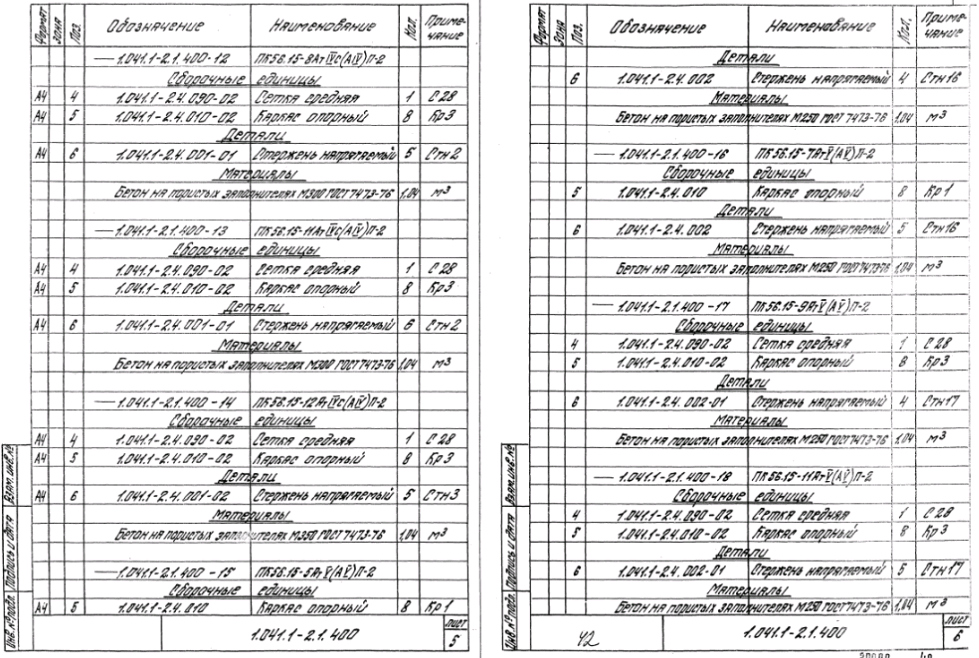 Формат Зона Поз. Обозначение Наименование Кол. Примечание
— 1.041.1-2.1.400-12 ПК56.15-8АтIVС(АIV)П-2
Сборочные единицы
А4 4 1.041.1-2.4.090-02 Сетка средняя 1 С28
А4 5 1.041.1-2.4.010-02 Каркас опорный 8 Кр3
Детали
А4 6 1.041.1-2.4.001-01 Стержень напрягаемый 5 Стн2
Материалы
Бетон на пористых заполнителях М300 ГОСТ 7473-76 1,04 м³
— 1.041.1-2.1.400-13 ПК56.15-11АтIVС(АIV)П-2
Сборочные единицы
А4 4 1.041.1-2.4.090-02 Сетка средняя 1 С28
А4 5 1.041.1-2.4.010-02 Каркас опорный 8 Кр3
Детали
А4 6 1.041.1-2.4.001-01 Стержень напрягаемый 6 Стн2
Материалы
Бетон на пористых заполнителях М300 ГОСТ 7473-76 1,04 м³
— 1.041.1-2.1.400-14 ПК56.15-12АтIVС(АIV)П-2
Сборочные единицы
А4 4 1.041.1-2.4.090-02 Сетка средняя 1 С28
А4 5 1.041.1-2.4.010-02 Каркас опорный 8 Кр3
Детали
А4 6 1.041.1-2.4.001-02 Стержень напрягаемый 5 Стн3
Материалы
Бетон на пористых заполнителях М350 ГОСТ 7473-76 1,04 м³
— 1.041.1-2.1.400-15 ПК56.15-5АтV(АV)П-2
Сборочные единицы
А4 5 1.041.1-2.4.010 Каркас опорный 8 Кр1
Инв.№ подл. Подпись и дата Взам.инв.№
1.041.1-2.1.400 Лист 5
Формат Зона Поз. Обозначение Наименование Кол. Примечание
Детали
6 1.041.1-2.4.002 Стержень напрягаемый 4 Стн16
Материалы
Бетон на пористых заполнителях М250 ГОСТ 7473-76 1,04 м³
— 1.041.1-2.1.400-16 ПК56.15-7АтV(АV)П-2
Сборочные единицы
5 1.041.1-2.4.010 Каркас опорный 8 Кр1
Детали
6 1.041.1-2.4.002 Стержень напрягаемый 5 Стн16
Материалы
Бетон на пористых заполнителях М250 ГОСТ 7473-76 1,04 м³
— 1.041.1-2.1.400-17 ПК56.15-9АтV(АV)П-2
Сборочные единицы
4 1.041.1-2.4.090-02 Сетка средняя 1 С28
5 1.041.1-2.4.010-02 Каркас опорный 8 Кр3
Детали
6 1.041.1-2.4.002-01 Стержень напрягаемый 4 Стн17
Материалы
Бетон на пористых заполнителях М250 ГОСТ 7473-76 1,04 м³
— 1.041.1-2.1.400-18 ПК56.15-11АтV(АV)П-2
Сборочные единицы
4 1.041.1-2.4.090-02 Сетка средняя 1 С28
5 1.041.1-2.4.010-02 Каркас опорный 8 Кр3
Детали
6 1.041.1-2.4.002-01 Стержень напрягаемый 5 Стн17
Материалы
Бетон на пористых заполнителях М250 ГОСТ 7473-76 1,04 м³
Инв.№ подл. Подпись и дата Взам.инв.№
42 1.041.1-2.1.400 Лист 6